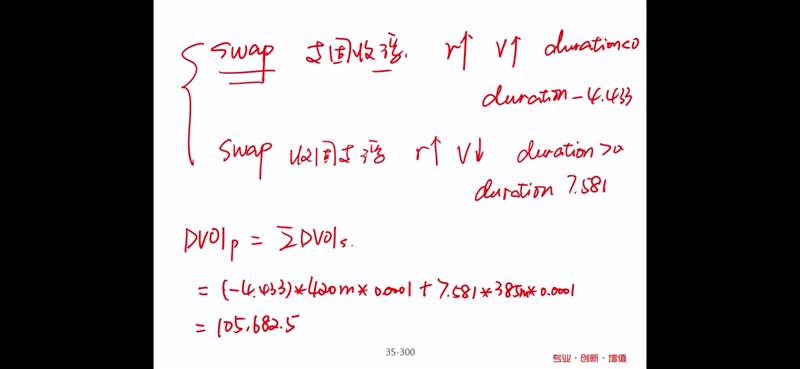 swap 支固收浮. r↑ V↑ duration<0
duration -4.433
swap 收固支浮 r↑ V↓ duration>0
duration 7.581
DV01p = ΣDV01s.
= (-4.433)*420m*0.0001 + 7.581*385m*0.0001
= 105,682.5
35-300
专业·创新·增值